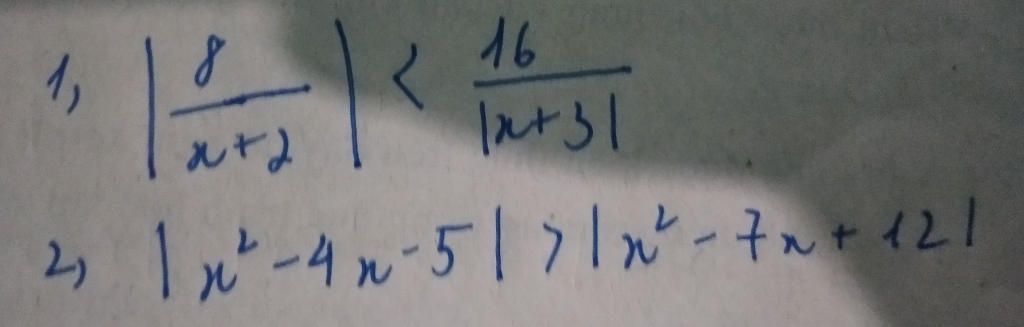 1, |8/(x+2)| < 16/|x+3|
2, |x² - 4x - 5| > |x² - 7x + 12|